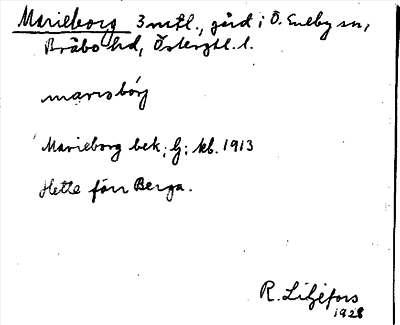 Marieborg 3 mtl., gård i Ö. Eneby sn,
Bråbo hd, Östergtl. l.
marisbórj
Marieborg bek; G; kb. 1913
Hette förr Berga.
R. Liljefors
1928